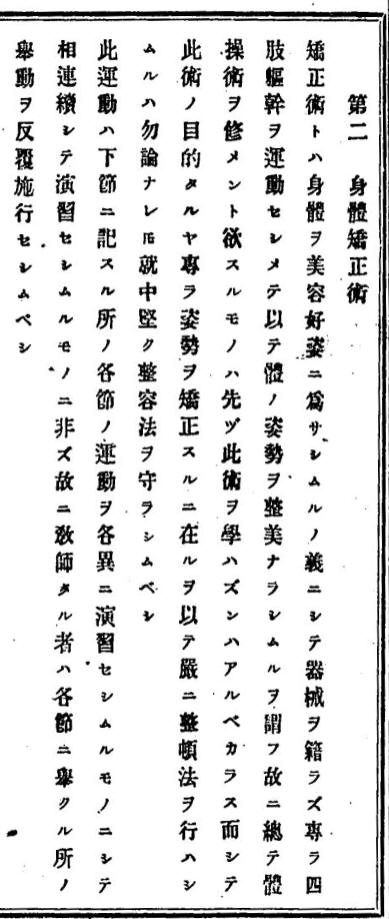 第二　身體矯正術
矯正術トハ身體ヲ美容好姿ニ爲サシムルノ義ニシテ器械ヲ籍ラズ專ラ四
肢軀幹ヲ運動セシメテ以テ體ノ姿勢ヲ整美ナラシムルヲ謂フ故ニ總テ體
操術ヲ修メント欲スルモノハ先ヅ此術ヲ學ハズンハアルベカラス而シテ
此術ノ目的タルヤ專ラ姿勢ヲ矯正スルニ在ルヲ以テ嚴ニ整頓法ヲ行ハシ
ムルハ勿論ナレ𪜈就中堅ク整容法ヲ守ラシムベシ
此運動ハ下節ニ記スル所ノ各節ノ運動ヲ各異ニ演習セシムルモノニシテ
相連續シテ演習セシムルモノニ非ズ故ニ敎師タル者ハ各節ニ擧クル所ノ
擧動ヲ反覆施行セシムベシ